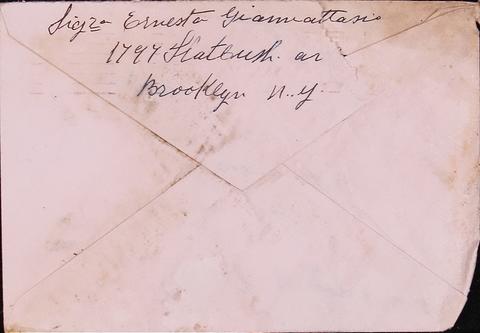 Sigra Ernesta Giannattasio
1797 Flatbush av
Brooklyn N.Y